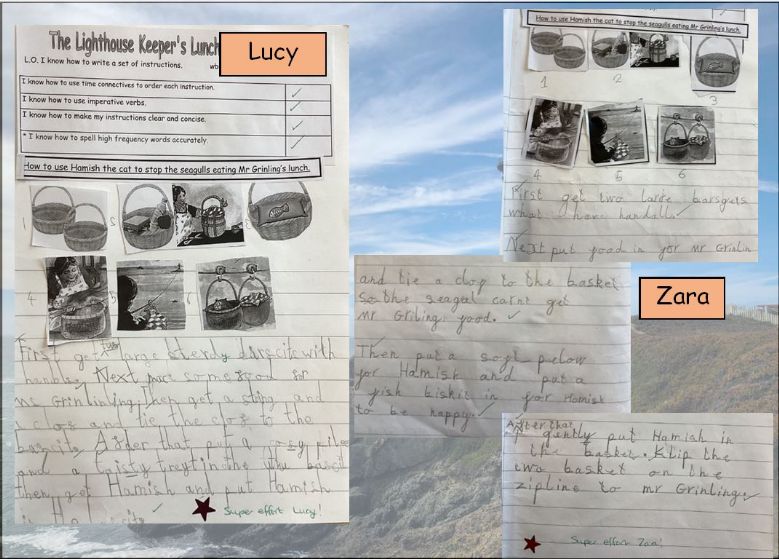 The Lighthouse Keeper's Lunch
Lucy
L.O. I know how to write a set of instructions.
I know how to use time connectives to order each instruction.
I know how to use imperative verbs.
I know how to make my instructions clear and concise.
* I know how to spell high frequency words accurately.
How to use Hamish the cat to stop the seagulls eating Mr Grinling's lunch.
1
2
3
4
5
6
First get two large sterdy
with
Next
some food for
Then get a string and
a clos and tie the
to the
After that put a cosy
and a
in the
then get Hamish and put Hamish
Super effort Lucy!
How to use Hamish the cat to stop the seagulls eating Mr Grinling's lunch.
1
2
3
4
5
6
First get two large barsguts
what have
Next put food in for Mr Grinlin
and tie a clop to the basket
so the seagul carnt get
Mr Griling food.
Zara
Then put a soft pelow
for Hamish and put a
fish biskit in for Hamish
to be happy.
After that
gently put Hamish in
the basket. Klip the
two basket on the
zipline to mr Grinling.
Super effort Zara!